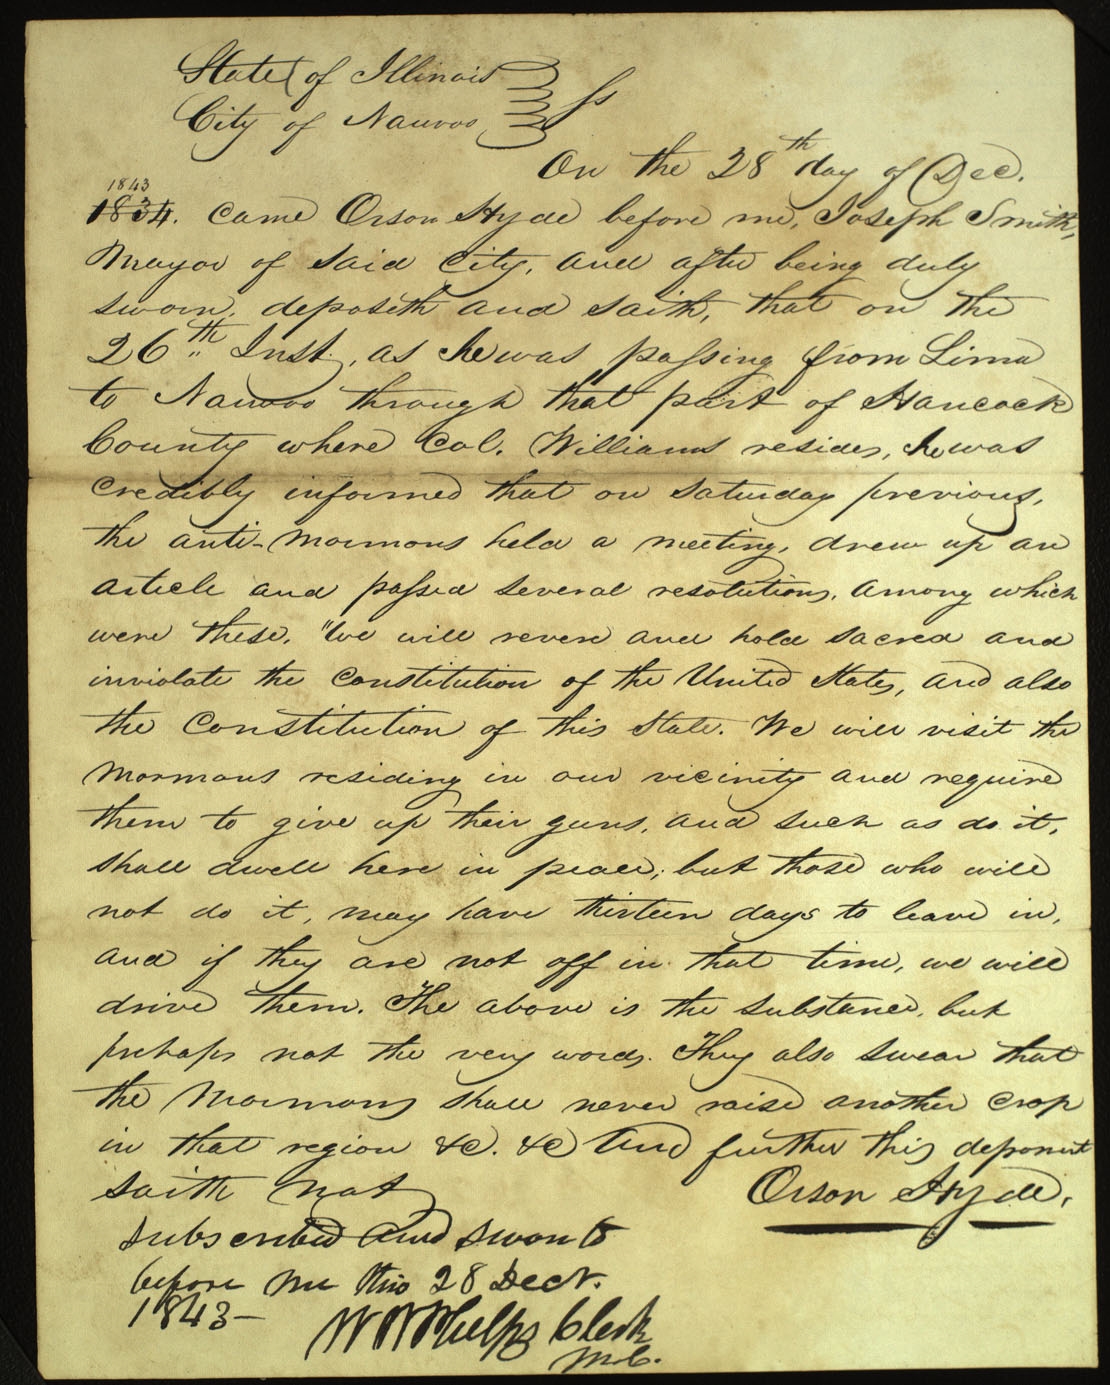 State of Illinois
City of Nauvoo ss
On the 28th day of Dec.
1843
1834. came Orson Hyde before me, Joseph Smith,
Mayor of said City, and after being duly
sworn, deposeth and saith, that on the
26th Inst., as he was passing from Lima
to Nauvoo through that part of Hancock
County where Col. Williams resides, he was
credibly informed that on Saturday previous,
the anti-Mormons held a meeting, drew up an
article and passed several resolutions, among which
were these. "We will revere and hold sacred and
inviolate the Constitution of the United States, and also
the Constitution of this State. We will visit the
Mormons residing in our vicinity and require
them to give up their guns, and such as do it,
shall dwell here in peace; but those who will
not do it, may have thirteen days to leave in,
and if they are not off in that time, we will
drive them. The above is the substance, but
perhaps not the very words. They also swear that
the Mormons shall never raise another crop
in that region &c. &c And further this deponent
saith not
Orson Hyde,
Subscribed and sworn to
before me this 28 Decr.
1843—
W W Phelps Clerk
M.C.